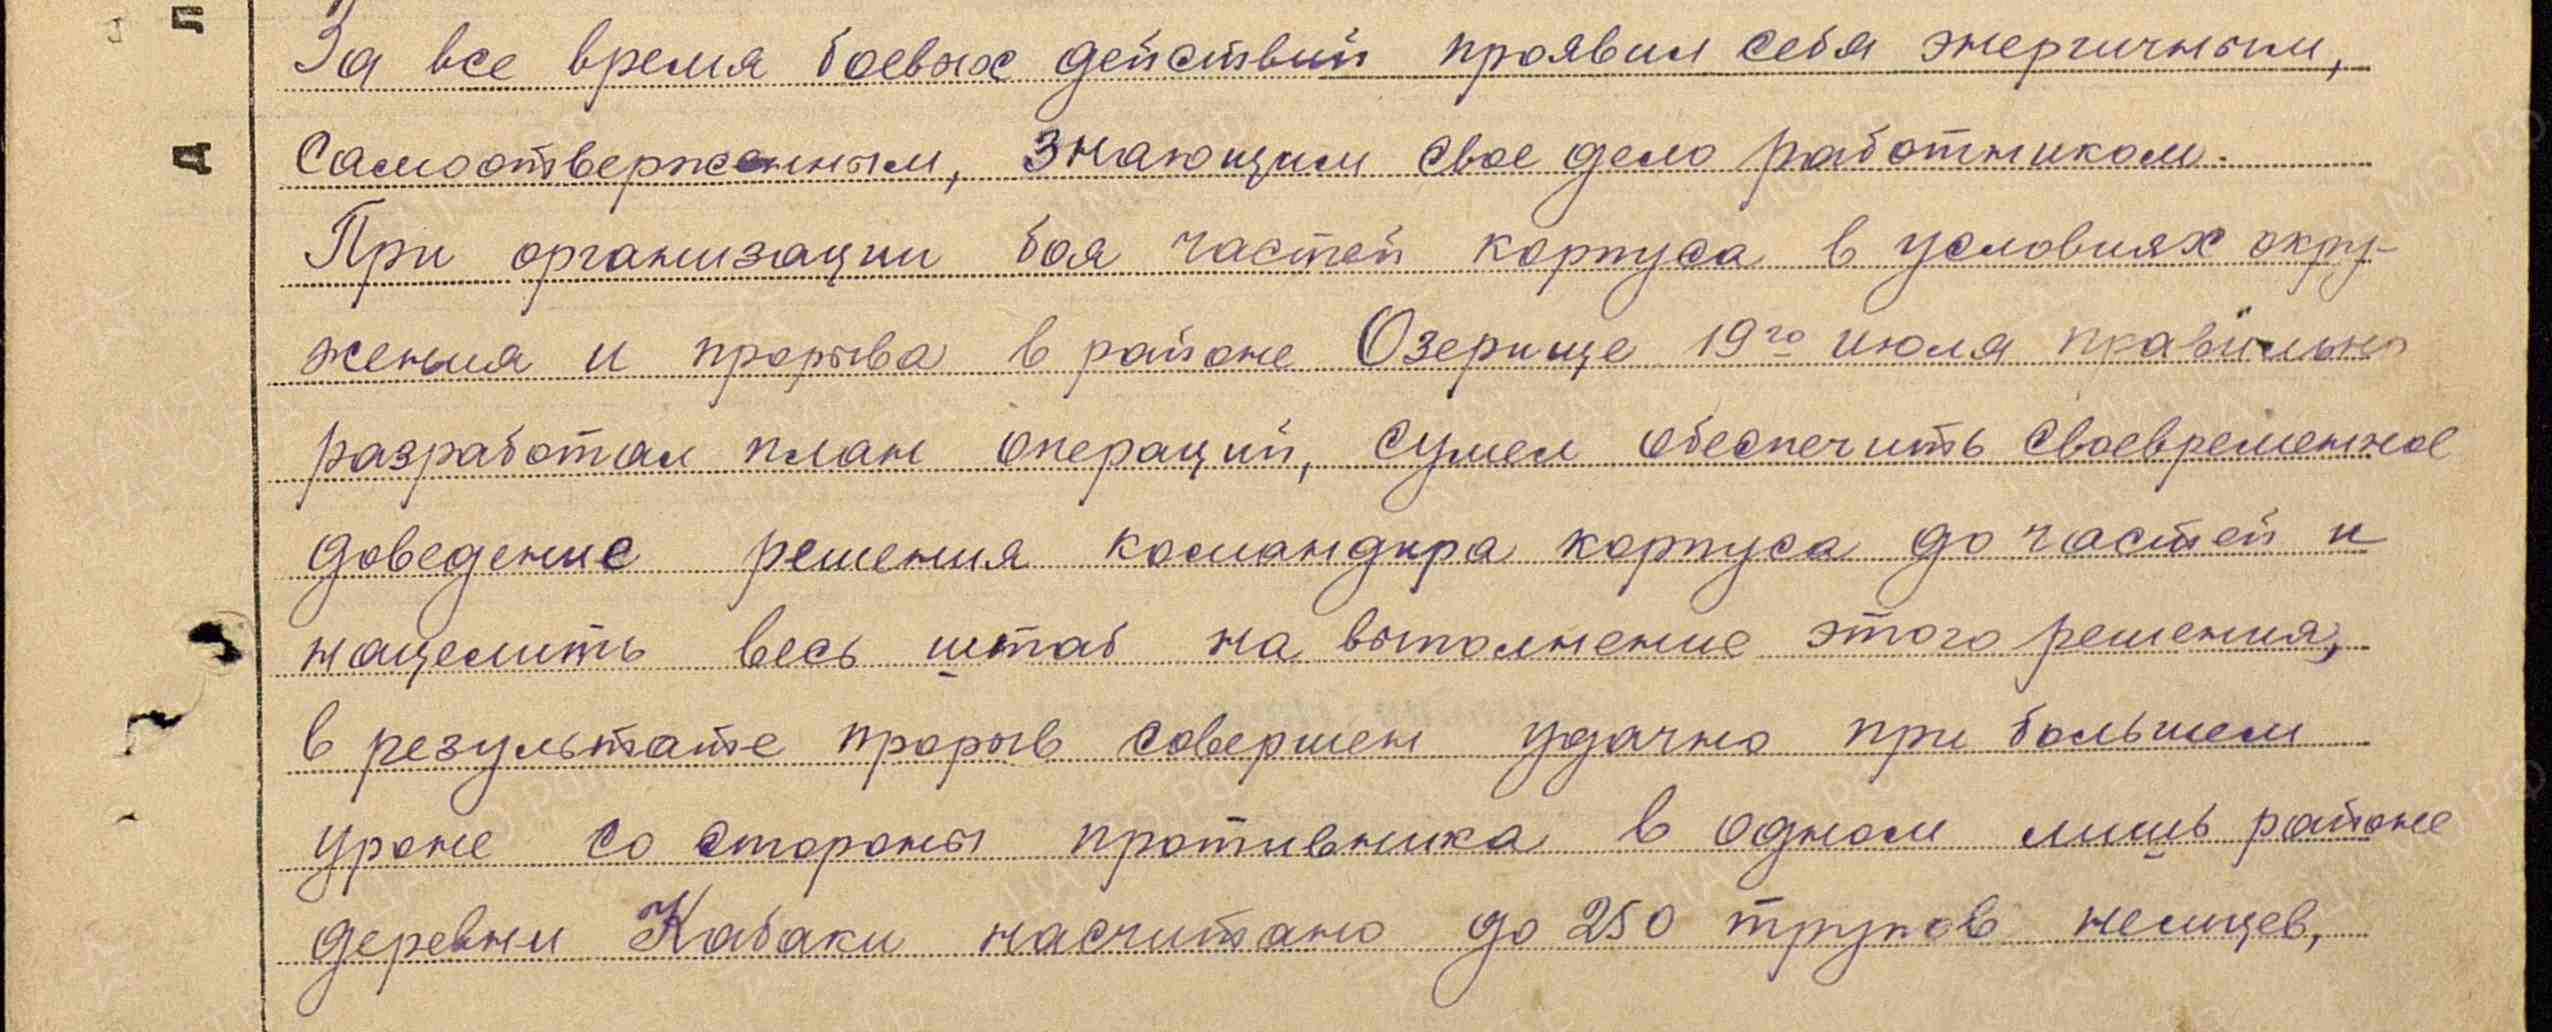 За все время боевых действий проявил себя энергичным,
самоотверженным, знающим свое дело работником.
При организации боя частей корпуса в условиях окру-
жения и прорыва в районе Озерище 19го июля правильно
разработал план операций, сумел обеспечить своевременное
доведение решения командира корпуса до частей и
нацелить весь штаб на выполнение этого решения,
в результате прорыв совершен удачно при большем
уроне со стороны противника в одном лишь районе
деревни Кабаки насчитано до 250 трупов немцев,